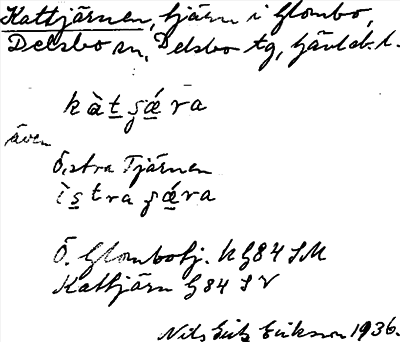 Kattjärnen, tjärn i Glombo,
Delsbo sn, Delsbo tg, Gävleb. l.
kàt̲ ʂǽra
även
Östra Tjärnen
ìs̲tra ʂǽra
Ö. Glombotj. KG84 SM
Kattjärn G 84 S V
Nils Erik Erikson 1936.